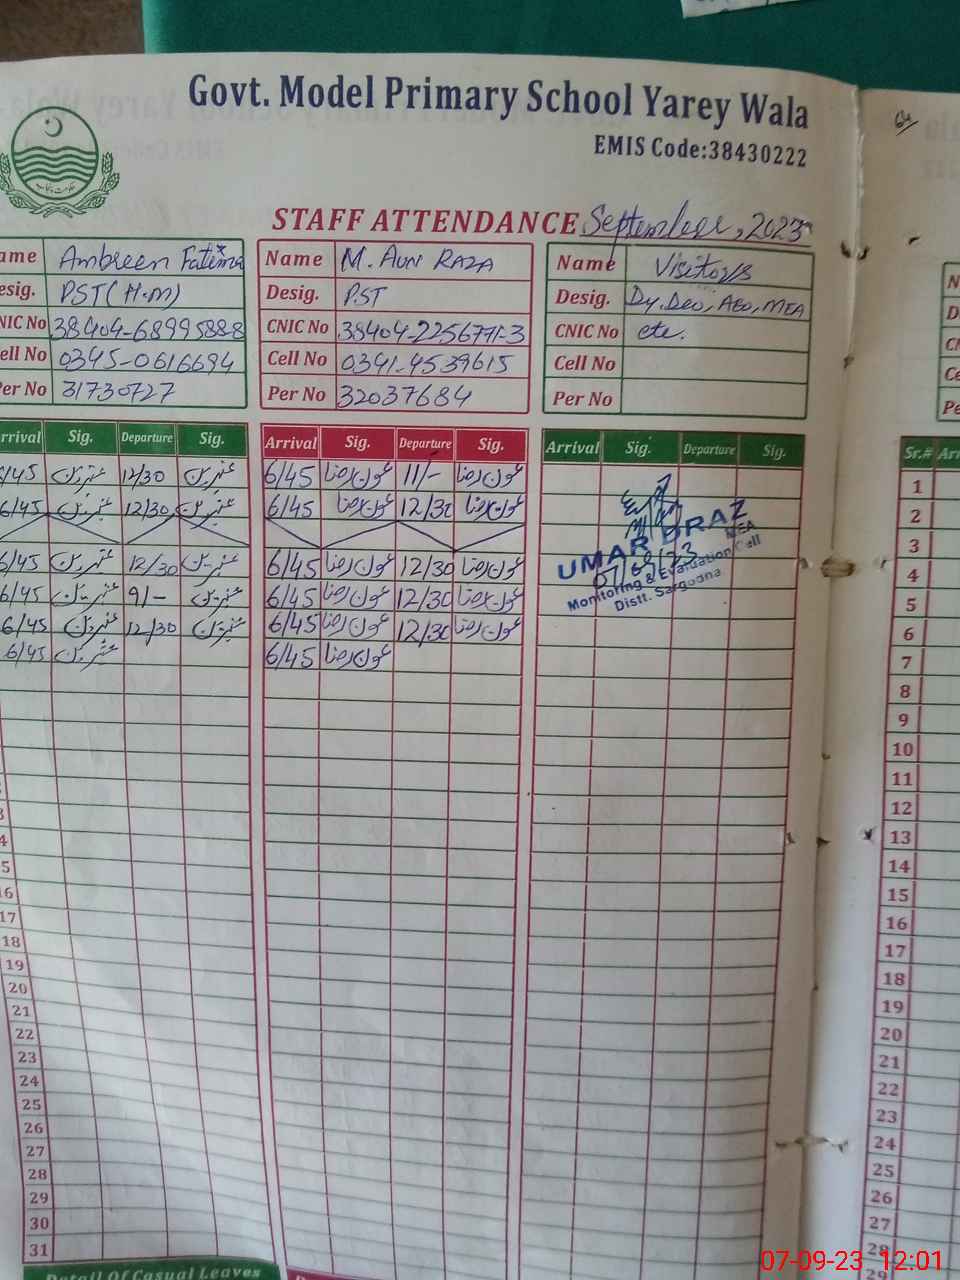 Govt. Model Primary School Yarey Wala
EMIS Code:38430222
حکومت پنجاب
STAFF ATTENDANCE September, 2023
ame Ambreen Fatima
esig. PST (H.M)
CNIC No 38404-6899588-8
ell No 0345-0616694
er No 31730727
Name M. Aun RAZA
Desig. PST
CNIC No 38404-2256771-3
Cell No 0341-4539615
Per No 32037684
Name Visitors
Desig. Dy. Deo, AEO, MEA
CNIC No etc.
Cell No
Per No
rrival Sig. Departure Sig.
6/45 عنبرین 12/30 عنبرین
6/45 عنبرین 12/30 عنبرین
6/45 عنبرین 12/30 عنبرین
6/45 عنبرین 9/- عنبرین
6/45 عنبرین 12/30 عنبرین
6/45 عنبرین
Arrival Sig. Departure Sig.
6/45 عون رضا 11/- عون رضا
6/45 عون رضا 12/30 عون رضا
6/45 عون رضا 12/30 عون رضا
6/45 عون رضا 12/30 عون رضا
6/45 عون رضا 12/30 عون رضا
6/45 عون رضا
Arrival Sig. Departure Sig.
UMAR DRAZ
MEA
07/09/23
Monitoring & Evaluation Cell
Distt. Sargodha
17
18
19
20
21
22
23
24
25
26
27
28
29
30
31
Detail Of Casual Leaves
Sr.# Arr
1
2
3
4
5
6
7
8
9
10
11
12
13
14
15
16
17
18
19
20
21
22
23
24
25
26
27
28
29
07-09-23 12:01